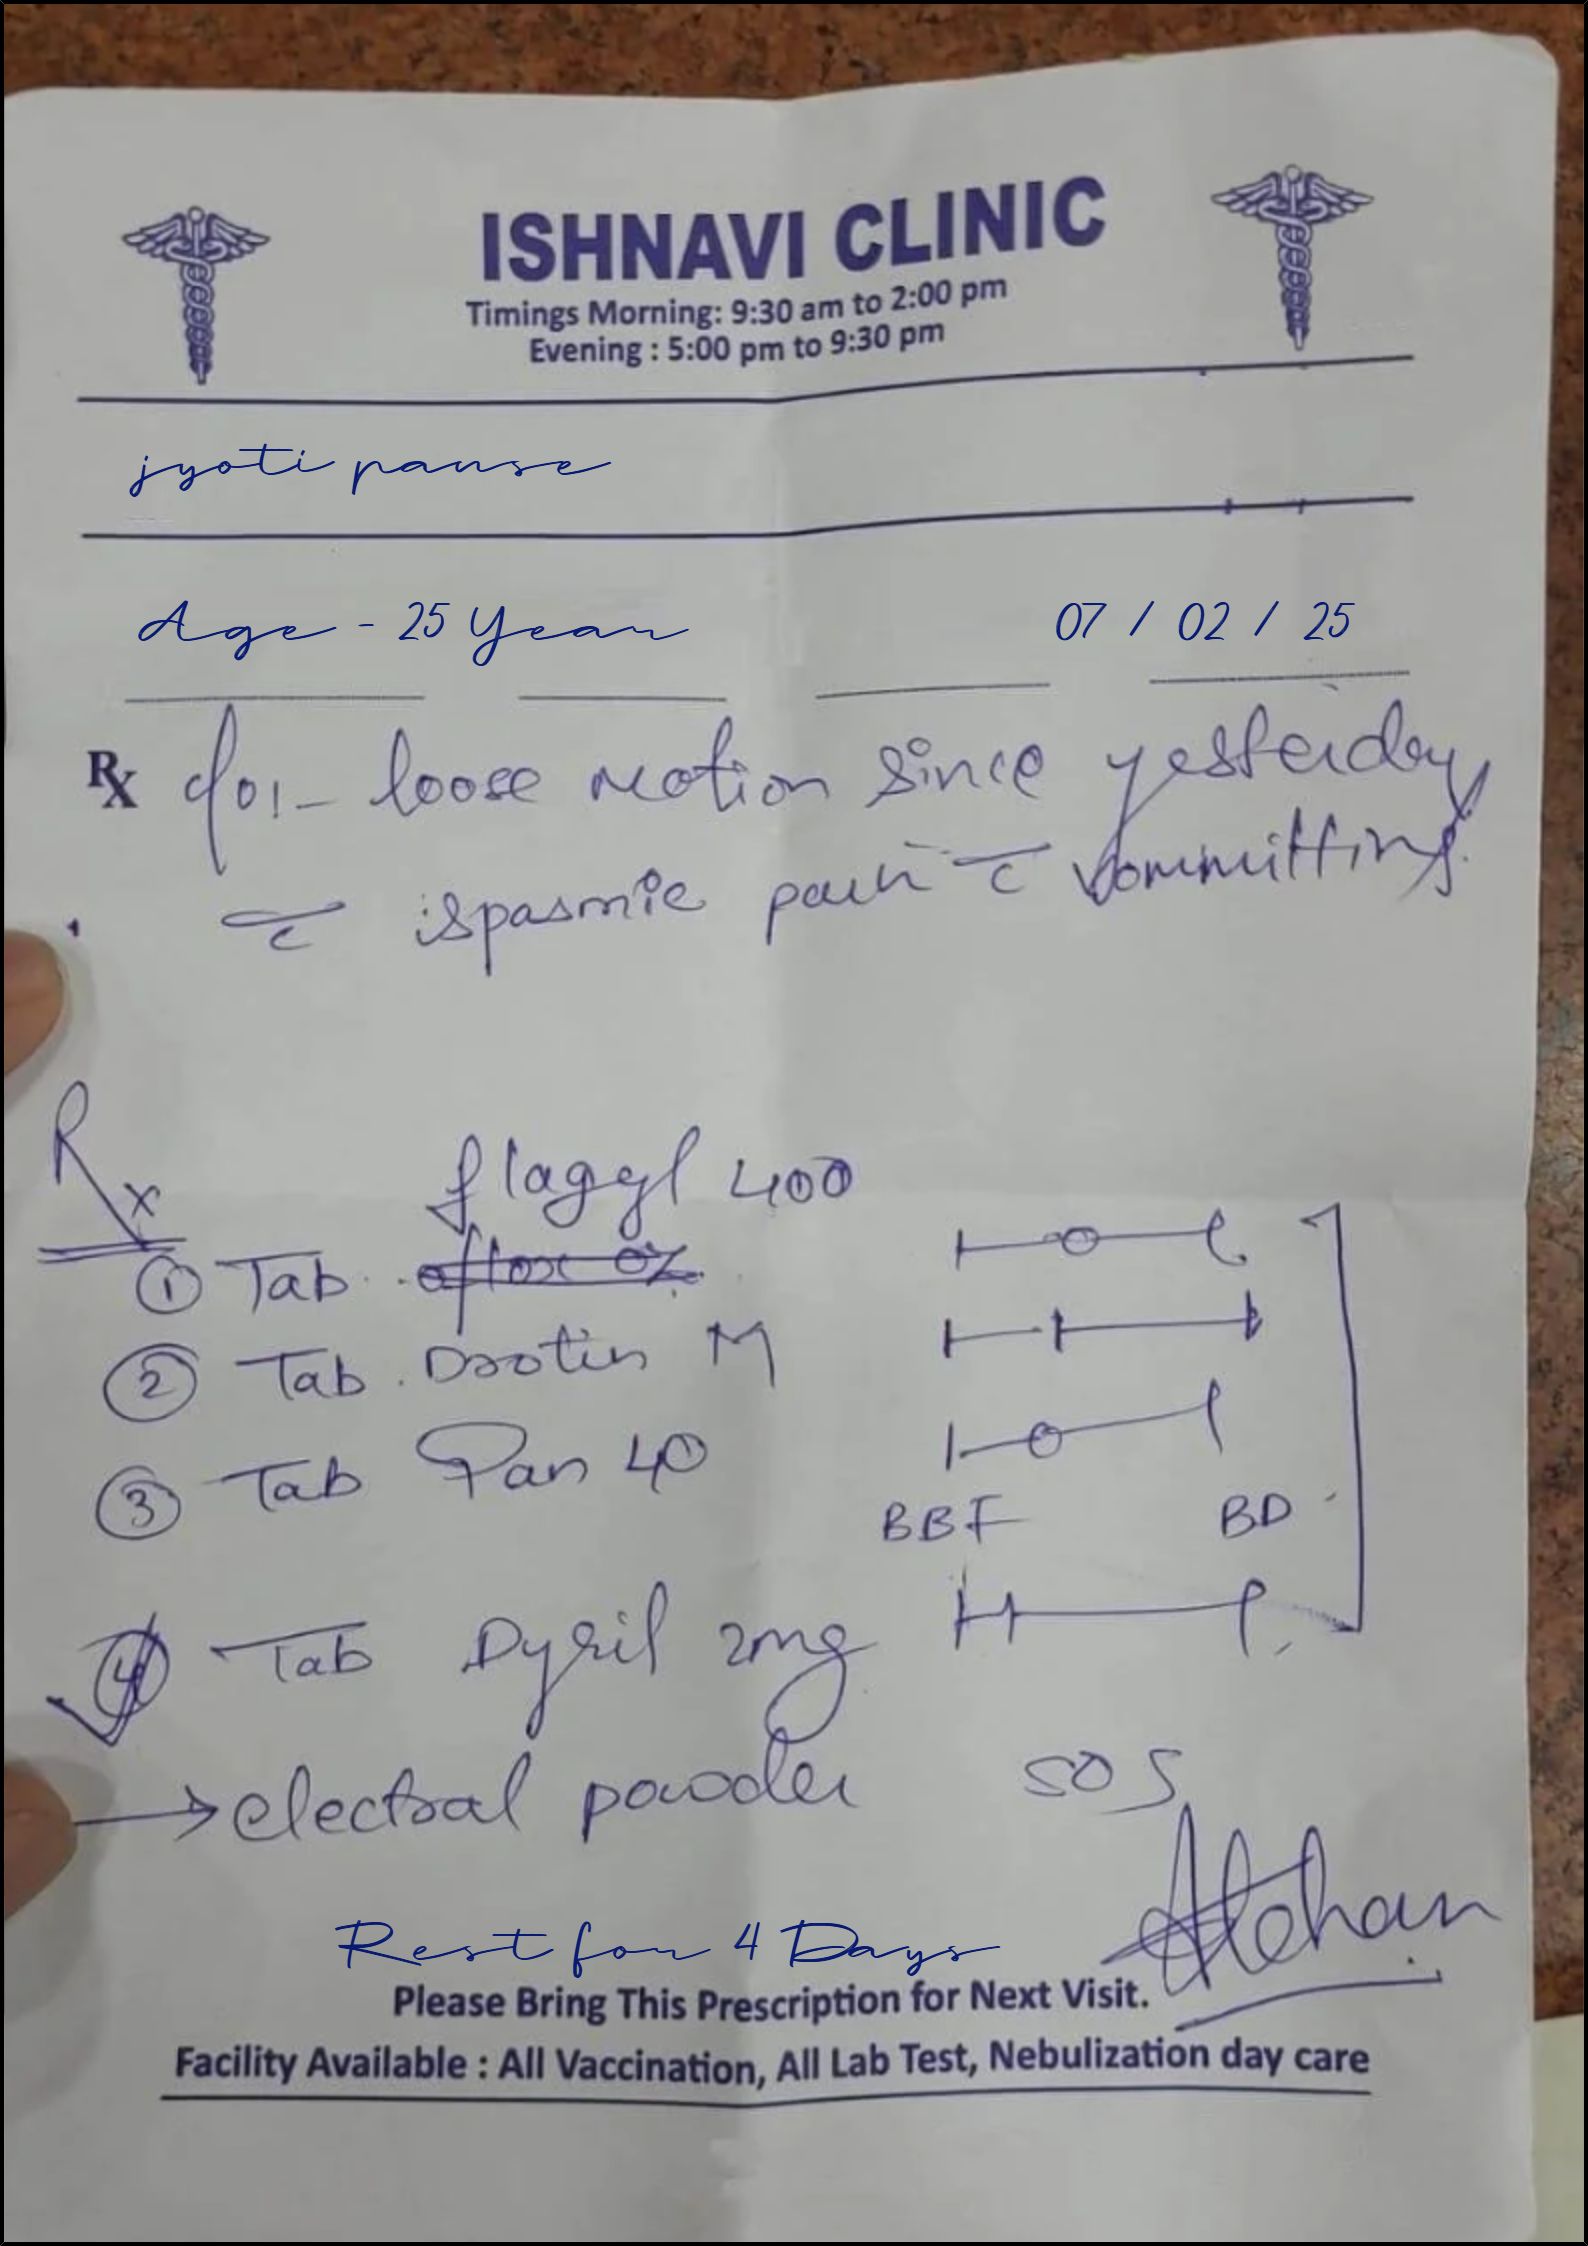 ISHNAVI CLINIC
Timings Morning: 9:30 am to 2:00 pm
Evening : 5:00 pm to 9:30 pm
jyoti pause
Age - 25 Year 07 / 02 / 25
Rx c/o:- loose motion since yesterday
c̄ spasmic pain c̄ vommitting
Rx
flagyl 400
① Tab oflox oz
② Tab. Drotin M
③ Tab Pan 40
BBF BD
④ Tab Dyril 2mg
→ electral powder SOS
Rest for 4 Days
Please Bring This Prescription for Next Visit.
Facility Available : All Vaccination, All Lab Test, Nebulization day care